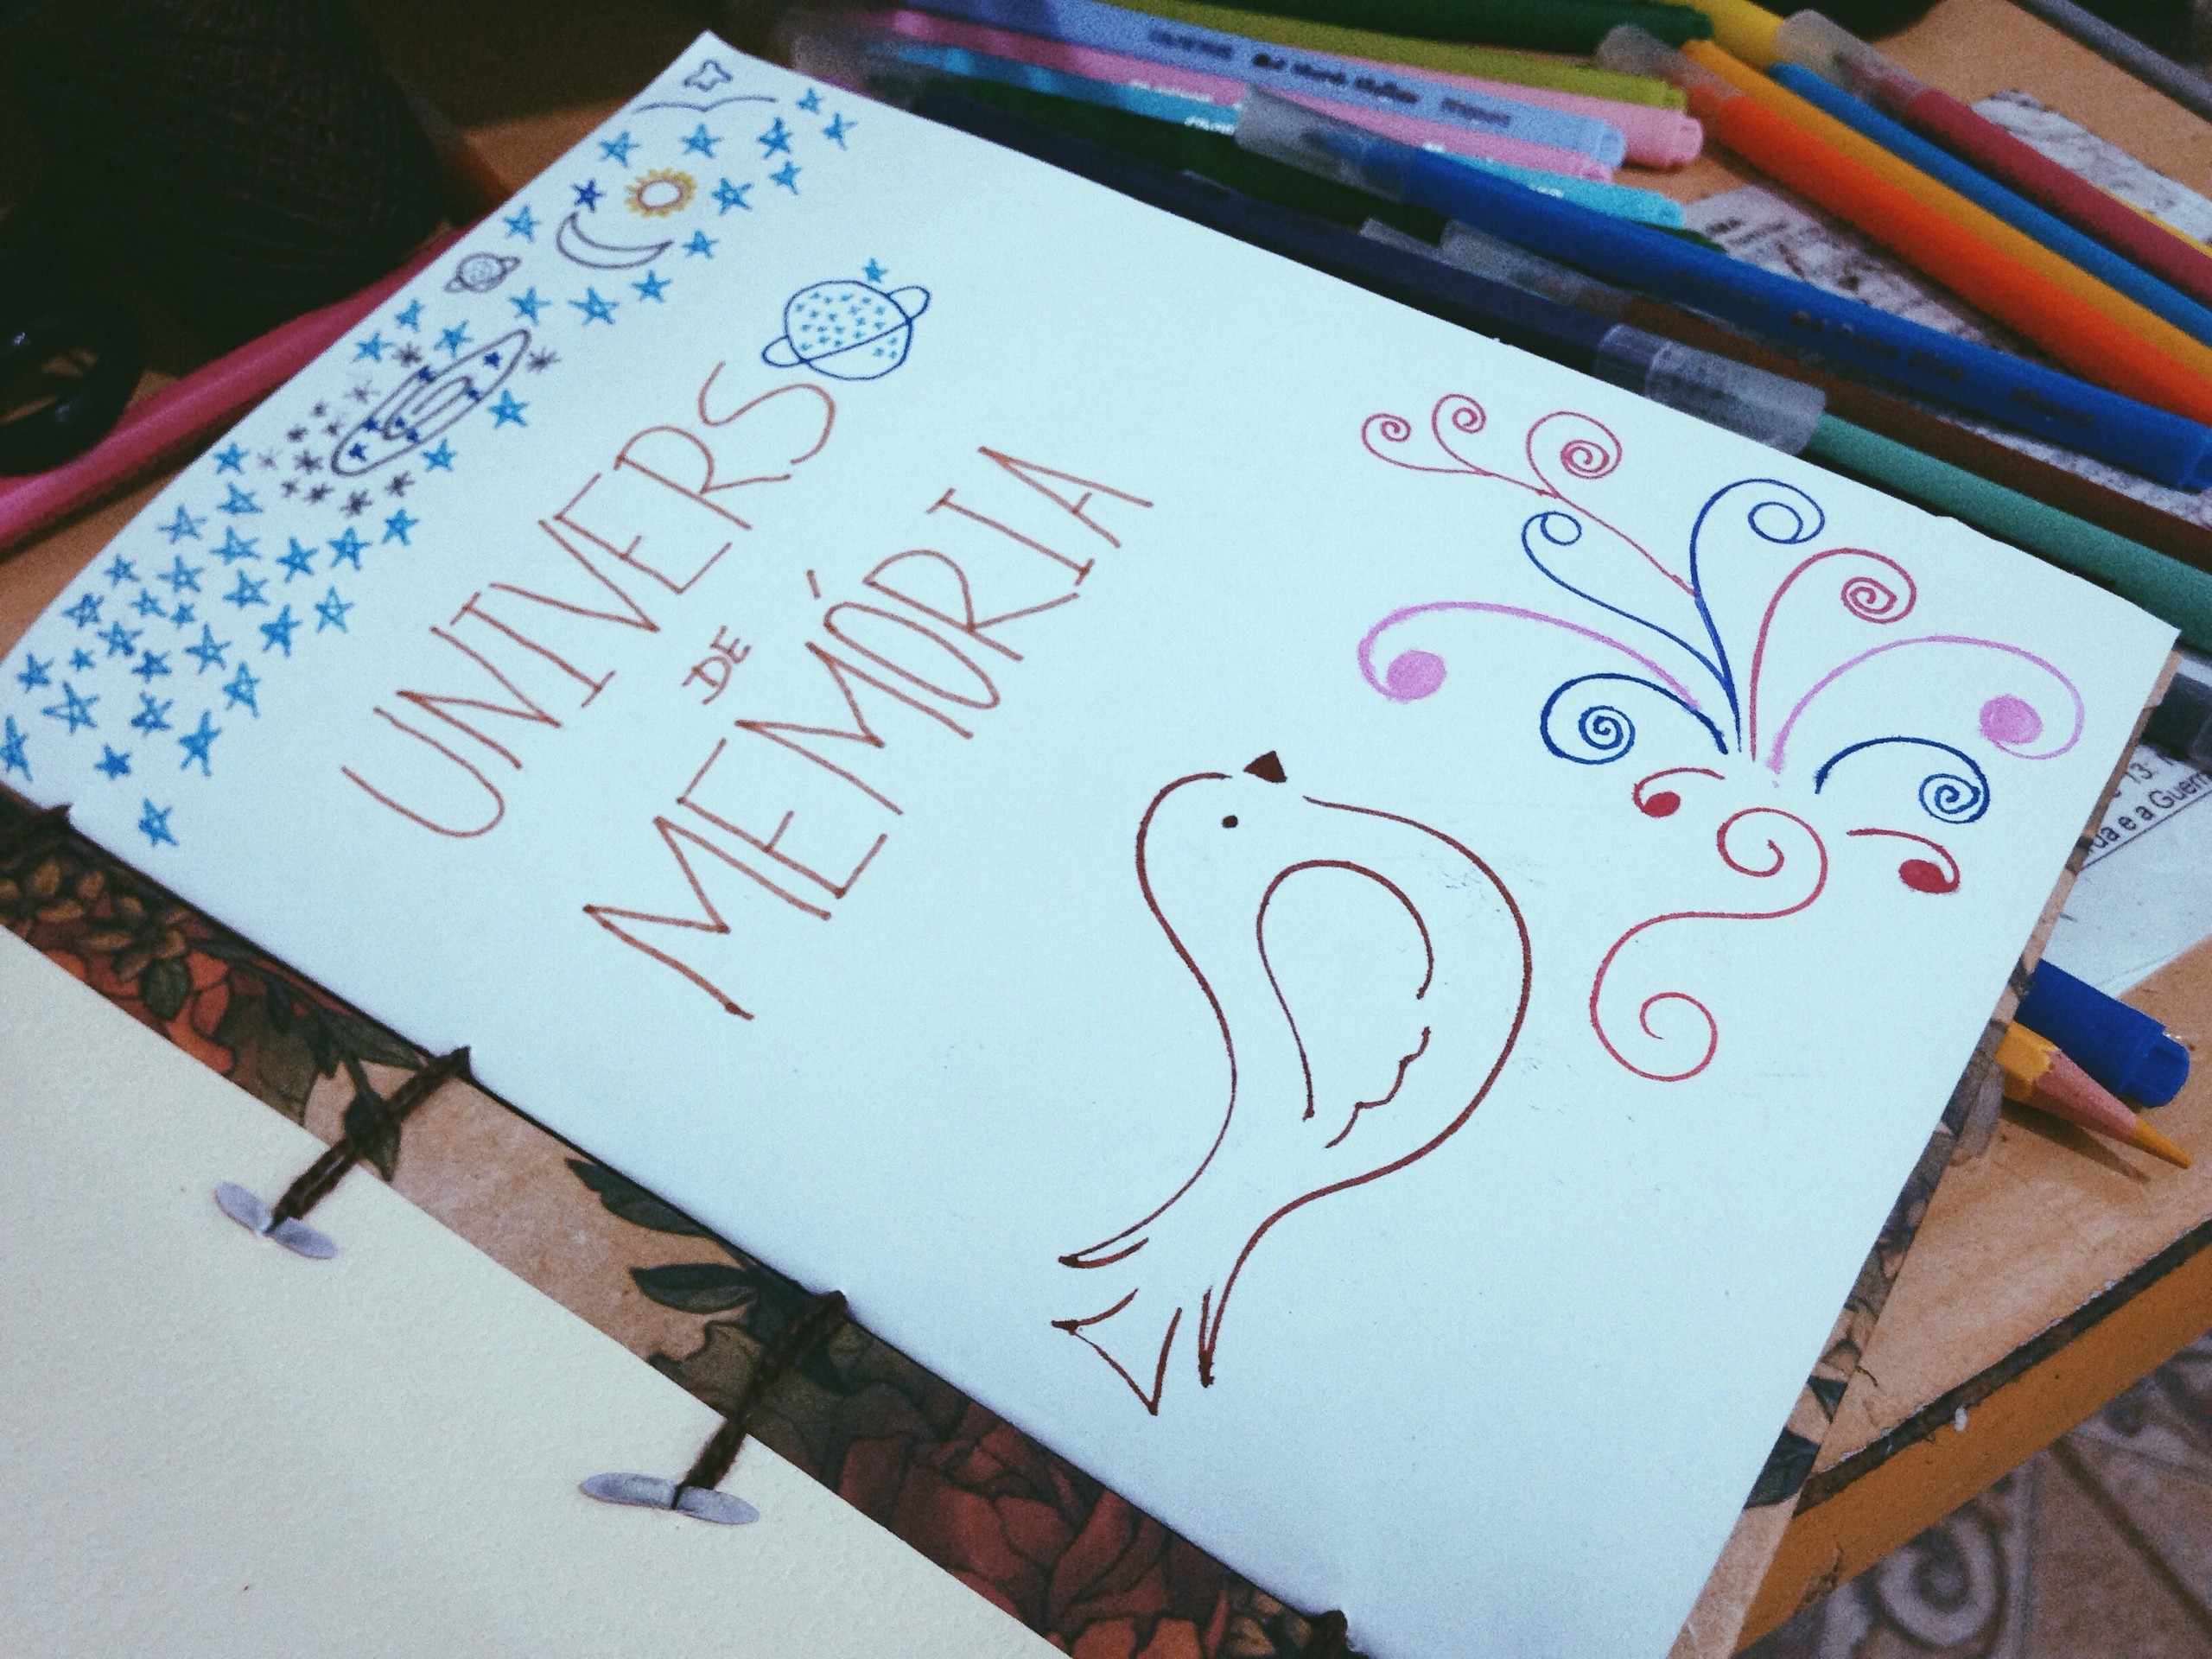 UNIVERSO
DE
MEMÓRIA
13:
e a Guerr